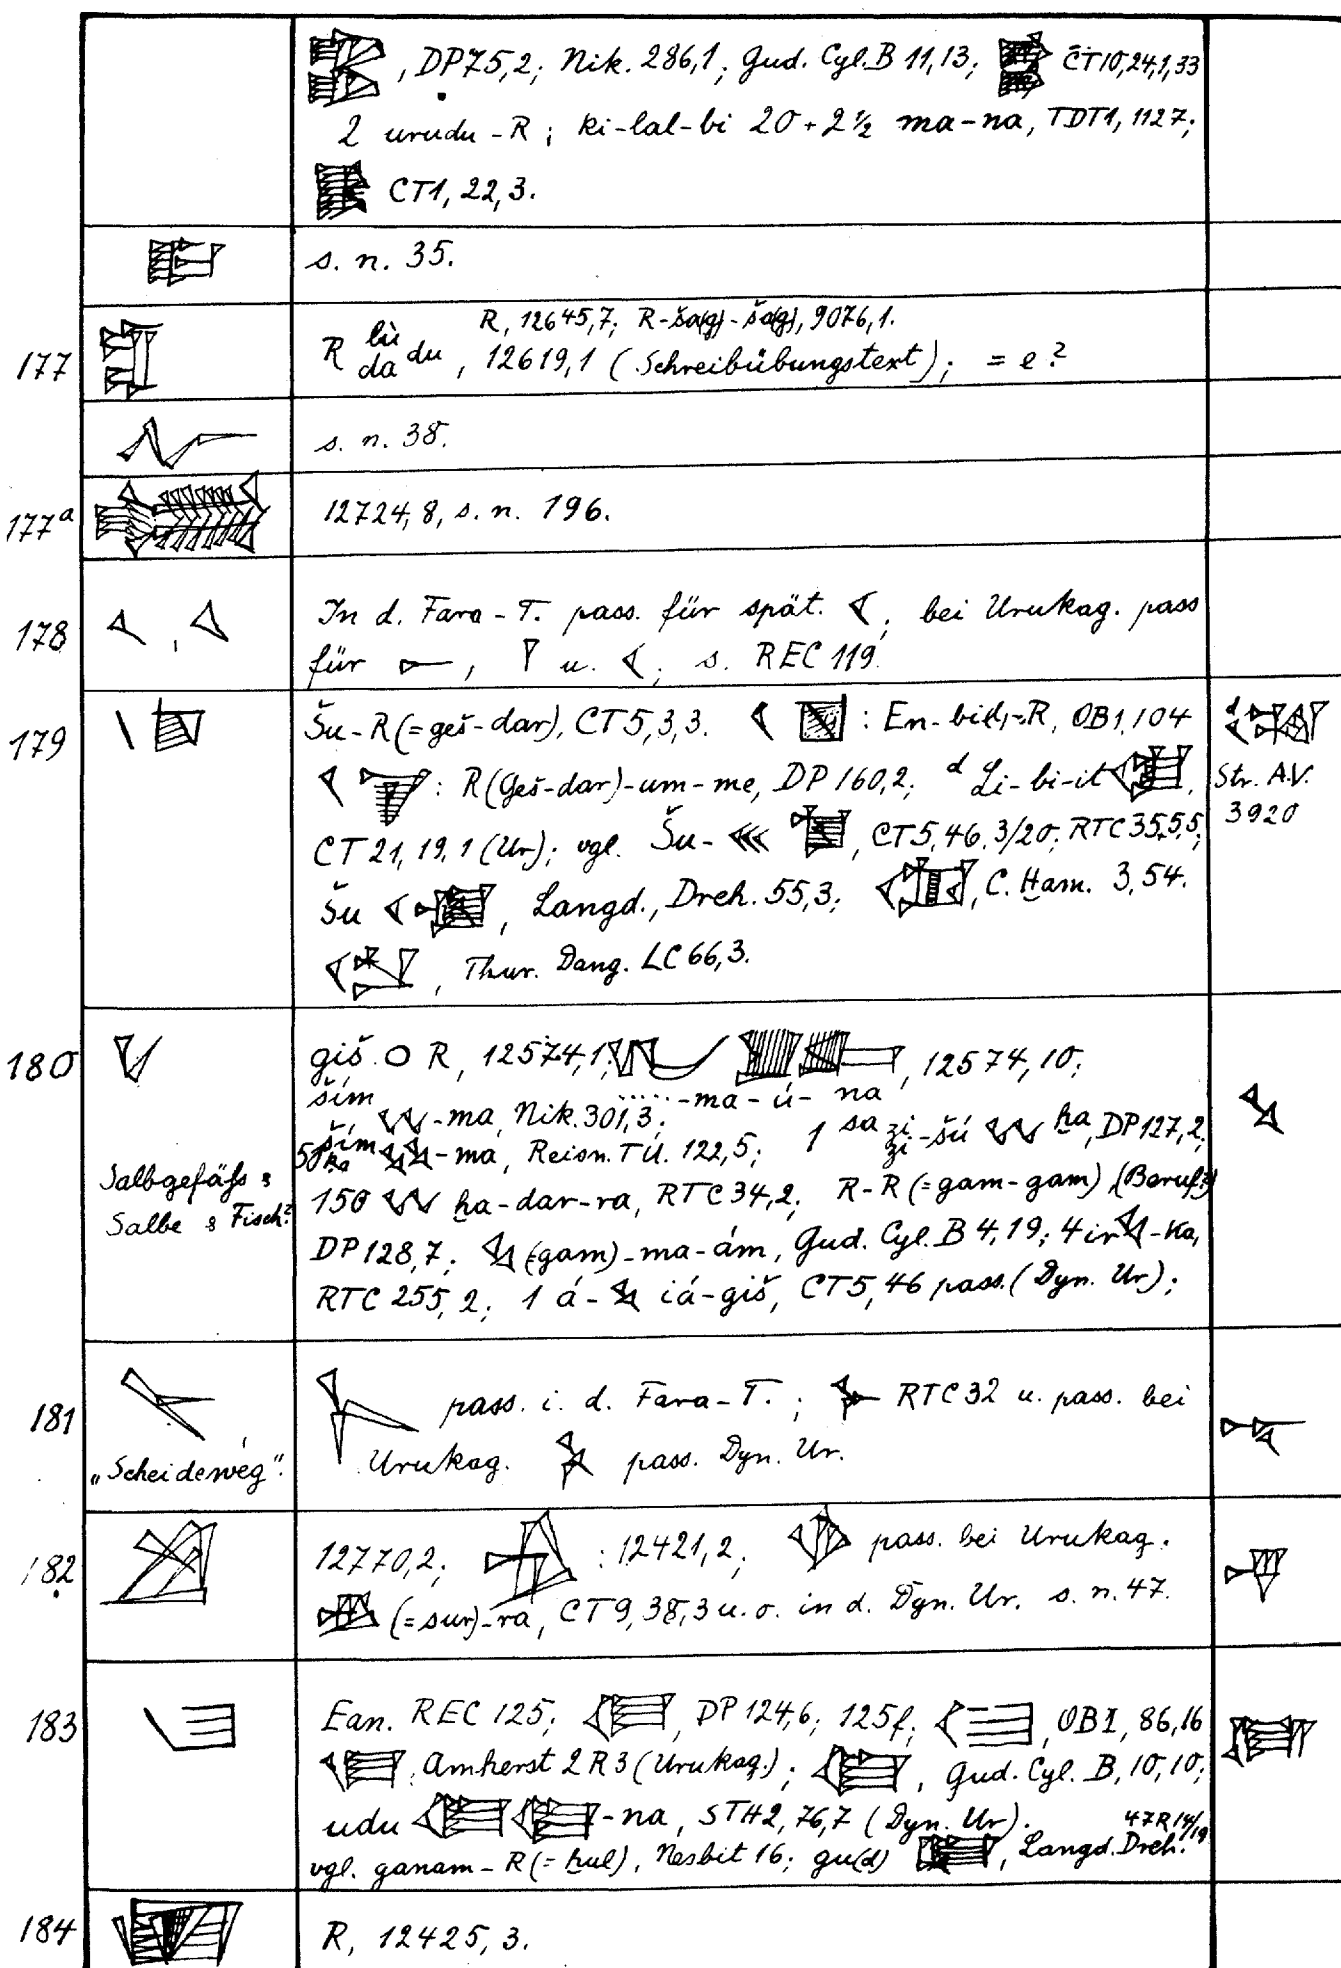 , DP75,2; Nik. 286,1; Gud. Cyl. B 11,13; CT10,24,1,33
2 urudu-R; ki-lal-bi 20+2½ ma-na, TDT1, 1127;
CT1, 22,3.
s. n. 35.
R, 12645,7; R-ša(g)-ša(g), 9076,1.
177 R lù da du, 12619,1 (Schreibübungstext); = e?
s. n. 38.
177a 12724,8, s. n. 196.
178 In d. Fara-T. pass. für spät. , bei Urukag. pass
für , u. ; s. REC 119.
179 Šu-R (= geš-dar), CT5,3,3. : En-bi(l)-R, OB1,104
: R (Geš-dar)-um-me, DP 160,2; d Li-bi-it , Str. A.V.
CT21,19,1 (Ur); vgl. Šu- , CT5,46,3/20; RTC 35,5,5; 3920
Šu , Langd., Dreh. 55,3; , C. Ham. 3,54.
, Thur. Dang. LC 66,3.
180 giš. O R, 12574,1; , 12574,10;
šim -ma, Nik. 301,3; .....-ma-ú-na
šim -ma, Reisn. TÚ. 122,5; 1 sa zi zi-šú ḫa, DP127,2,
Salbgefäß & 150 ḫa-dar-ra, RTC 34,2; R-R (= gam-gam) (Beruf?)
Salbe & Fisch? DP128,7; (gam)-ma-ám, Gud. Cyl. B 4,19; 4 ir -ka,
RTC 255,2; 1 á- iá-giš, CT5,46 pass. (Dyn. Ur);
181 pass. i. d. Fara-T.; RTC 32 u. pass. bei
„Scheideweg“. Urukag. pass. Dyn. Ur.
182 12770,2; : 12421,2; pass. bei Urukag.
(= sur)-ra, CT9,38,3 u. o. in d. Dyn. Ur. s. n. 47.
183 Ean. REC 125; , DP 124,6; 125f; , OBI, 86,16
, Amherst 2 R3 (Urukag.); , Gud. Cyl. B, 10,10;
udu -na, STH2, 76,7 (Dyn. Ur).
vgl. ganam-R (= ḫul), Nesbit 16; gu(d) , Langd. Dreh. 47R14/19
184 R, 12425,3.